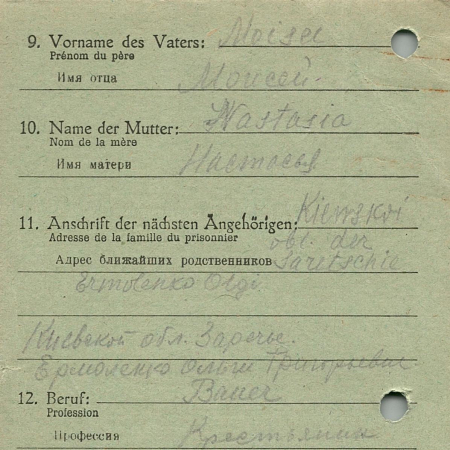 9. Vorname des Vaters: Moisei
Prénom du père
Имя отца Моисей
10. Name der Mutter: Nastasia
Nom de la mère
Имя матери Настосья
11. Anschrift der nächsten Angehörigen: Kiewskoi
Adresse de la famille du prisonnier obl. der
Адрес ближайших родственников Saretschie
Ermolenko Olgi
Киевской обл. Заречье.
Ермоленко Ольги Григорьевне
12. Beruf: Bauer
Profession
Профессия Крестьянин